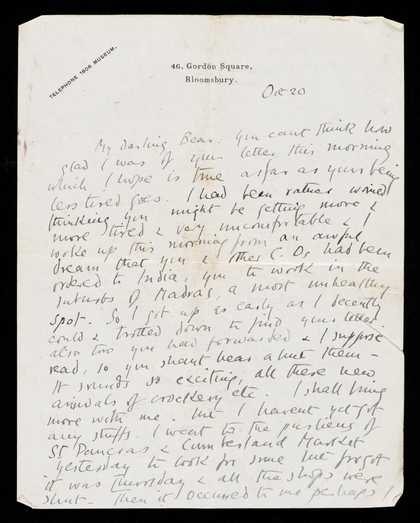 TELEPHONE 1608 MUSEUM.
46, Gordon Square,
Bloomsbury.
Oct 20
My Darling Bear. You cant think how
glad I was of your letter this morning
which I hope is true as far as yours being
less tired goes. I had been rather worried
thinking you might be getting more &
more tired & very uncomfortable & I
woke up this morning from an awful
dream that you & other C.Os had been
ordered to India, you to work in the
suburbs of Madras, a most unhealthy
spot. So I got up as early as I decently
could & trotted down to find your letter.
also two you had forwarded & I suppose
read, so you shant hear about them –
It sounds so exciting, all these new
arrivals of crockery etc. I shall bring
more with me. but I havent yet got
any stuffs. I went to the purlieus of
St Pancras & Cumberland Market
yesterday to look for some but forgot
it was Thursday & all the shops were
shut. Then it occurred to me perhaps I